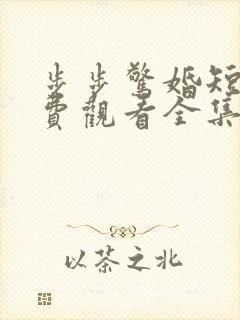 步步驚婚短
費觀看全集
以茶之北